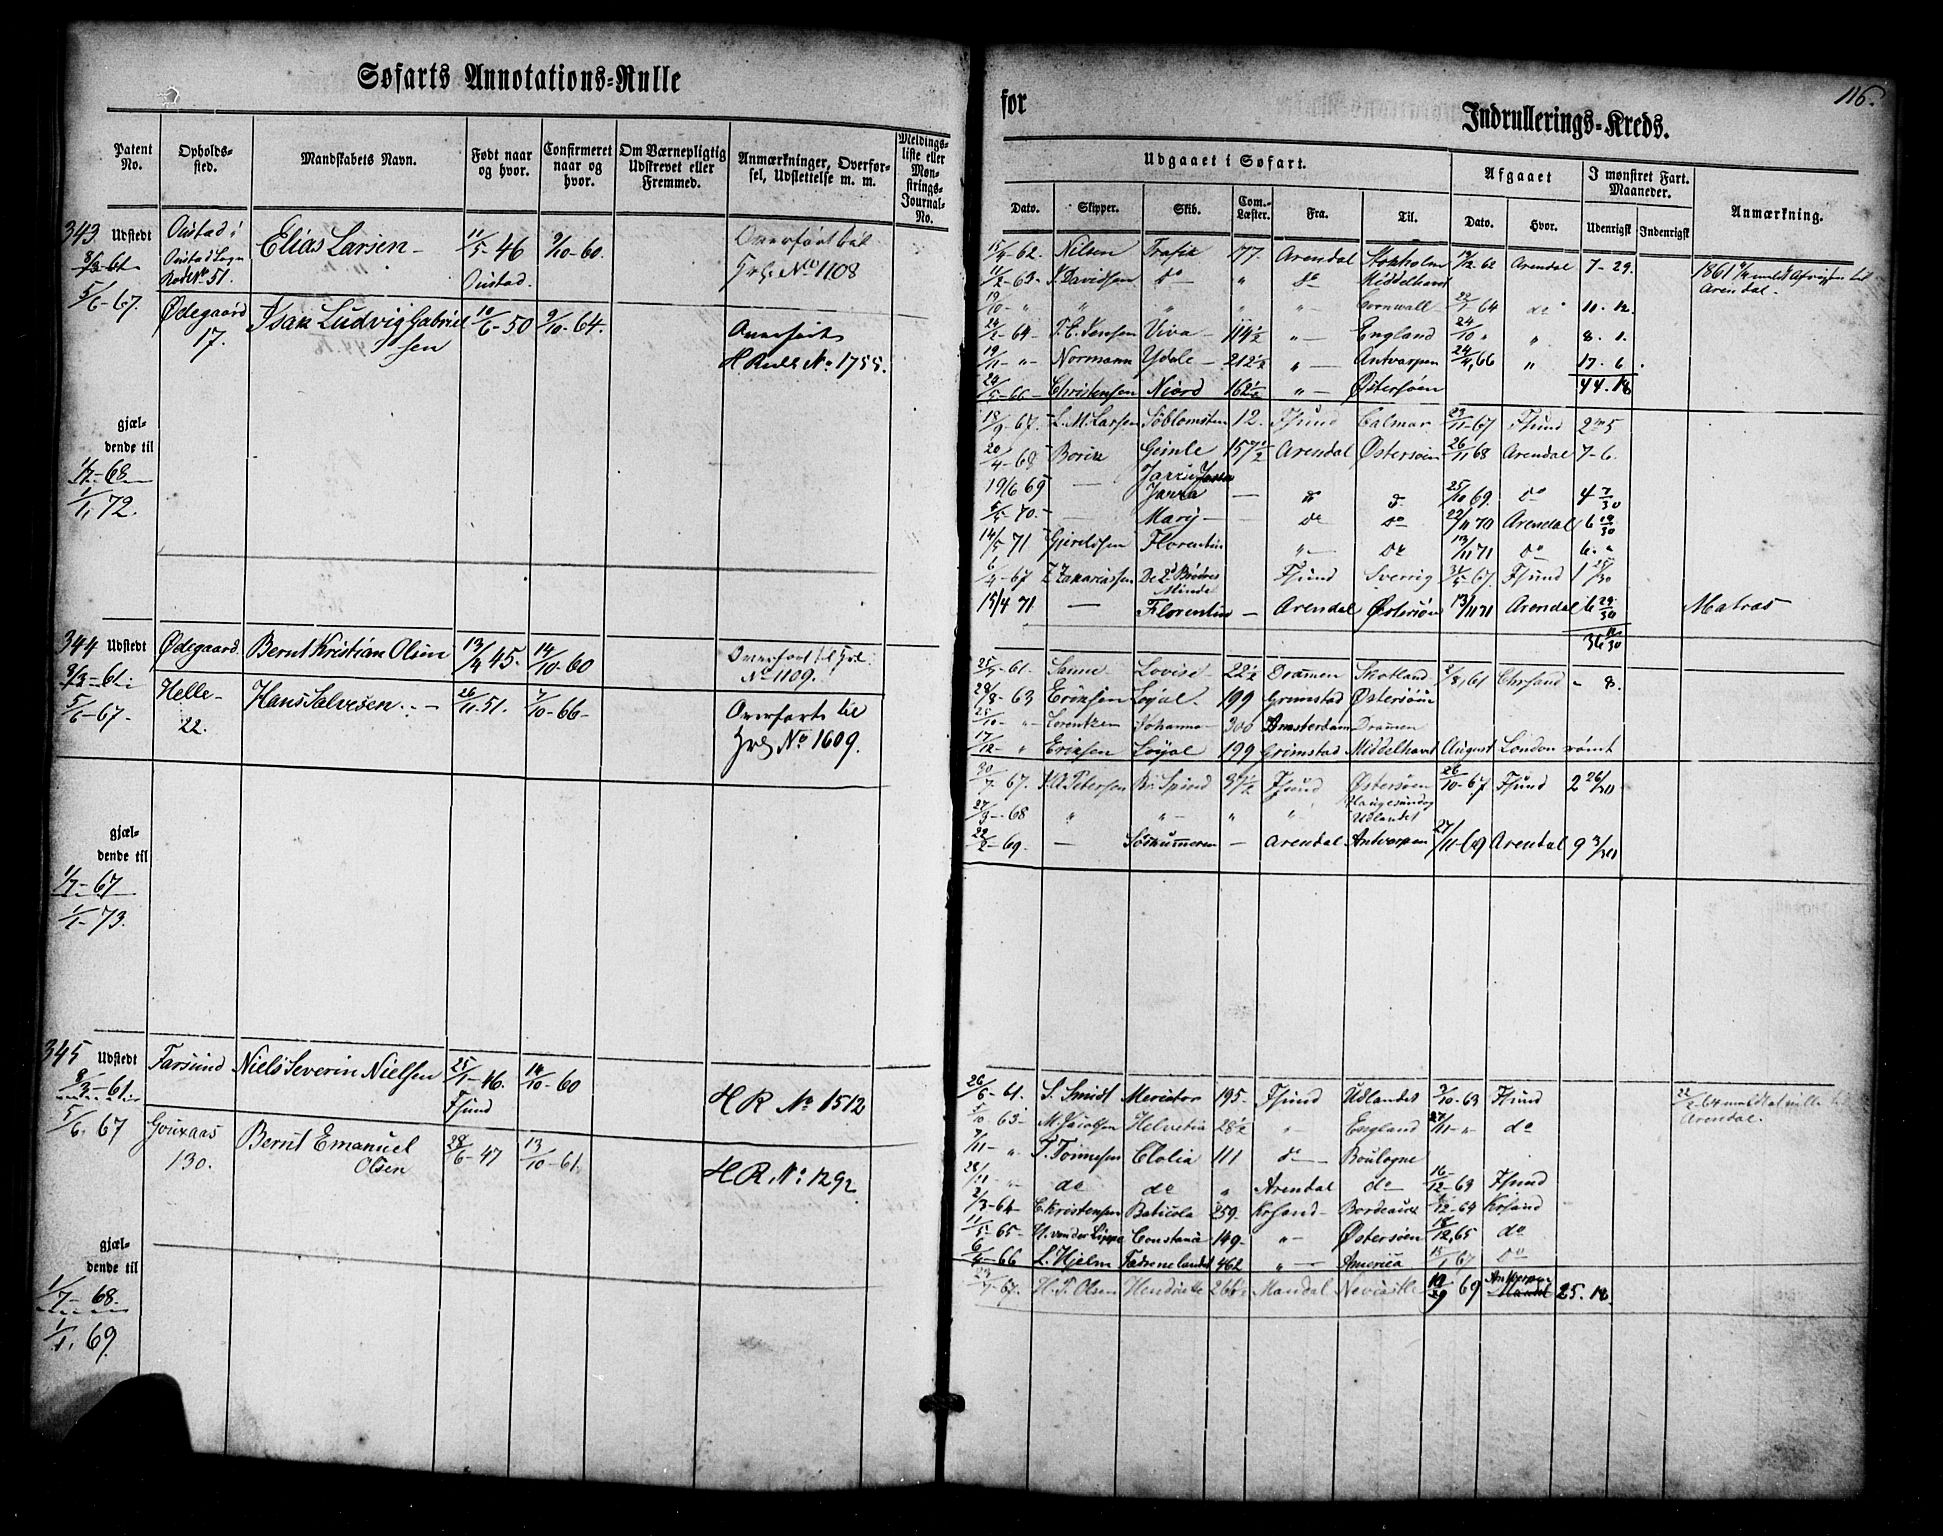 Søfarts Annotations-Rulle
for
Indrullerings-Kreds.
116.
Patent No.
Opholds-sted.
Mandskabets Navn.
Født naar og hvor.
Confirmeret naar og hvor.
Om Værnepligtig Udskrevet eller Fremmed.
Anmærkninger, Overførsel, Udslettelse m. m.
Meldings-liste eller Møn-strings-Journal-No.
Udgaaet i Søfart.
Afgaaet
I mønstret Fart. Maaneder.
Anmærkning.
Dato. Skipper. Skib. Com.-Læster. Fra. Til. Dato. Hvor. Udenrigsk Indenrigsk
343 Udstedt
8/3-61
Elias Larsen
11/5-46
9/10-60.
Overført til
Hrl. No 1108
Rode No 51.
Oustad.
5/6-67.
Ødegaard
17.
Isak Ludvig Gabriel
sen
10/6-50
9/10-64.
Overført
H Rulle No 1755.
gjæl-
dende til
1/7-68
1/1 72.
15/4-62 Nilsen Trafik 77. Arendal Stokholm 19/12-62 Arendal 7-29.
11/2-63 J. Davidsen do " do Middelhavet
19/10 " " " " " Cornwall 22/1 64 do 10. 12.
24/2-64 T. C. Jensen Viva 114 1/2 " England 24/10 " " 8. 1.
19/11 " Normann Ydale 212 1/2 " Antverpen 24/4 66 " 17. 6.
24/5-66 Christensen Niord 162 1/2 " Østersøen 44. 18
18/9-67. L. M. Larsen Søblomsten 12. Fsund Calmar 23/11-67 Fsund 2m5
20/4-68 Borie Gimle 157 1/2 Arendal Østersøen 26/11 68 Arendal 7-6.
19/6 69 — Jarra — do d. 25/10 69. do 4 7/30
5/5-70. — Mary — do do 22/11 70 Arendal 6 18/30
14/5 71 Gjerulfsen Florentin " do 13/11 71 do 6. "
6/4-67 Z. Zakariassen De 2de Brødres Minde Fsund Sverrig 31/5-67. Fsund 1 25/30
15/4 71 — Florentin — Arendal Østersøen 13/11 71 Arendal 6 29/30 Matros
344 Udstedt
8/3-61.
Ødegaard.
Bernt Kristian Olsen
13/4 45.
14/10-60
Overført til Hrl.
No 1109.
5/6-67.
Helle-
22.
Hans Salvesen
26/11-51.
7/10-66-
Overført til
Hrl No 1609.
gjæl-
dende til
1/7-67
1/1-73.
25/5-61. Lovise 22 1/2 Dramen Skotland 2/8 61 Chrsand - 8.
28/8-63 Eriksen Loyal 199 Grimstad Østersøen
25/10 " Lorentzen Johanna 300 Amsterdam Dramen
17/12 " Eriksen Loyal 199 Grimstad Middelhavet August London rømt
30/7-67. Petersen Spind 31 1/2 Fsund Østersøen 26/10-67 Fsund 2 26/30
27/3-68 " " " " Haugesund og
Udlandet
22/2-69. — Søskummeren — Arendal Antverpen 27/11-69 Arendal 9 3/30
345 Udstedt
8/3-61.
Farsund
Niels Severin Nielsen
25/1-46.
Fsund
14/10-60
H R No 1512
5/6. 67
130.
Bernt Emanuel
Olsen
28/6-47
13/10-61.
H R. No 1292
gjæl-
dende til
1/7-68.
1/1. 69.
26/6-61. S. Smidt Mercator 195- Fsund Udlandet 3/10-63 Fsund
5/10 63- M. Jacobsen Helvetia 28 1/2 " England 27/11 " do
Arendal.
9/11 " T. Tønnesen Clolia 111 do Boulogne
28/11 " do do " Arendal do 16/12-63 Fsund
2/3-64 C. Kristensen Baticola 259- Krsand- Bordeaux /12-64 Krsand
11/5-65- H. von der Lippe Constance 149- " Østersøen 18/12 65 do
6/4-66 L. Hjelm Fædrenelandet 462 " America 15/1 67 do
23/7-67. H. T. Olsen Hendriette 266 1/2 Mandal Newcastle 69 Antverpen Mandal 25. 18.